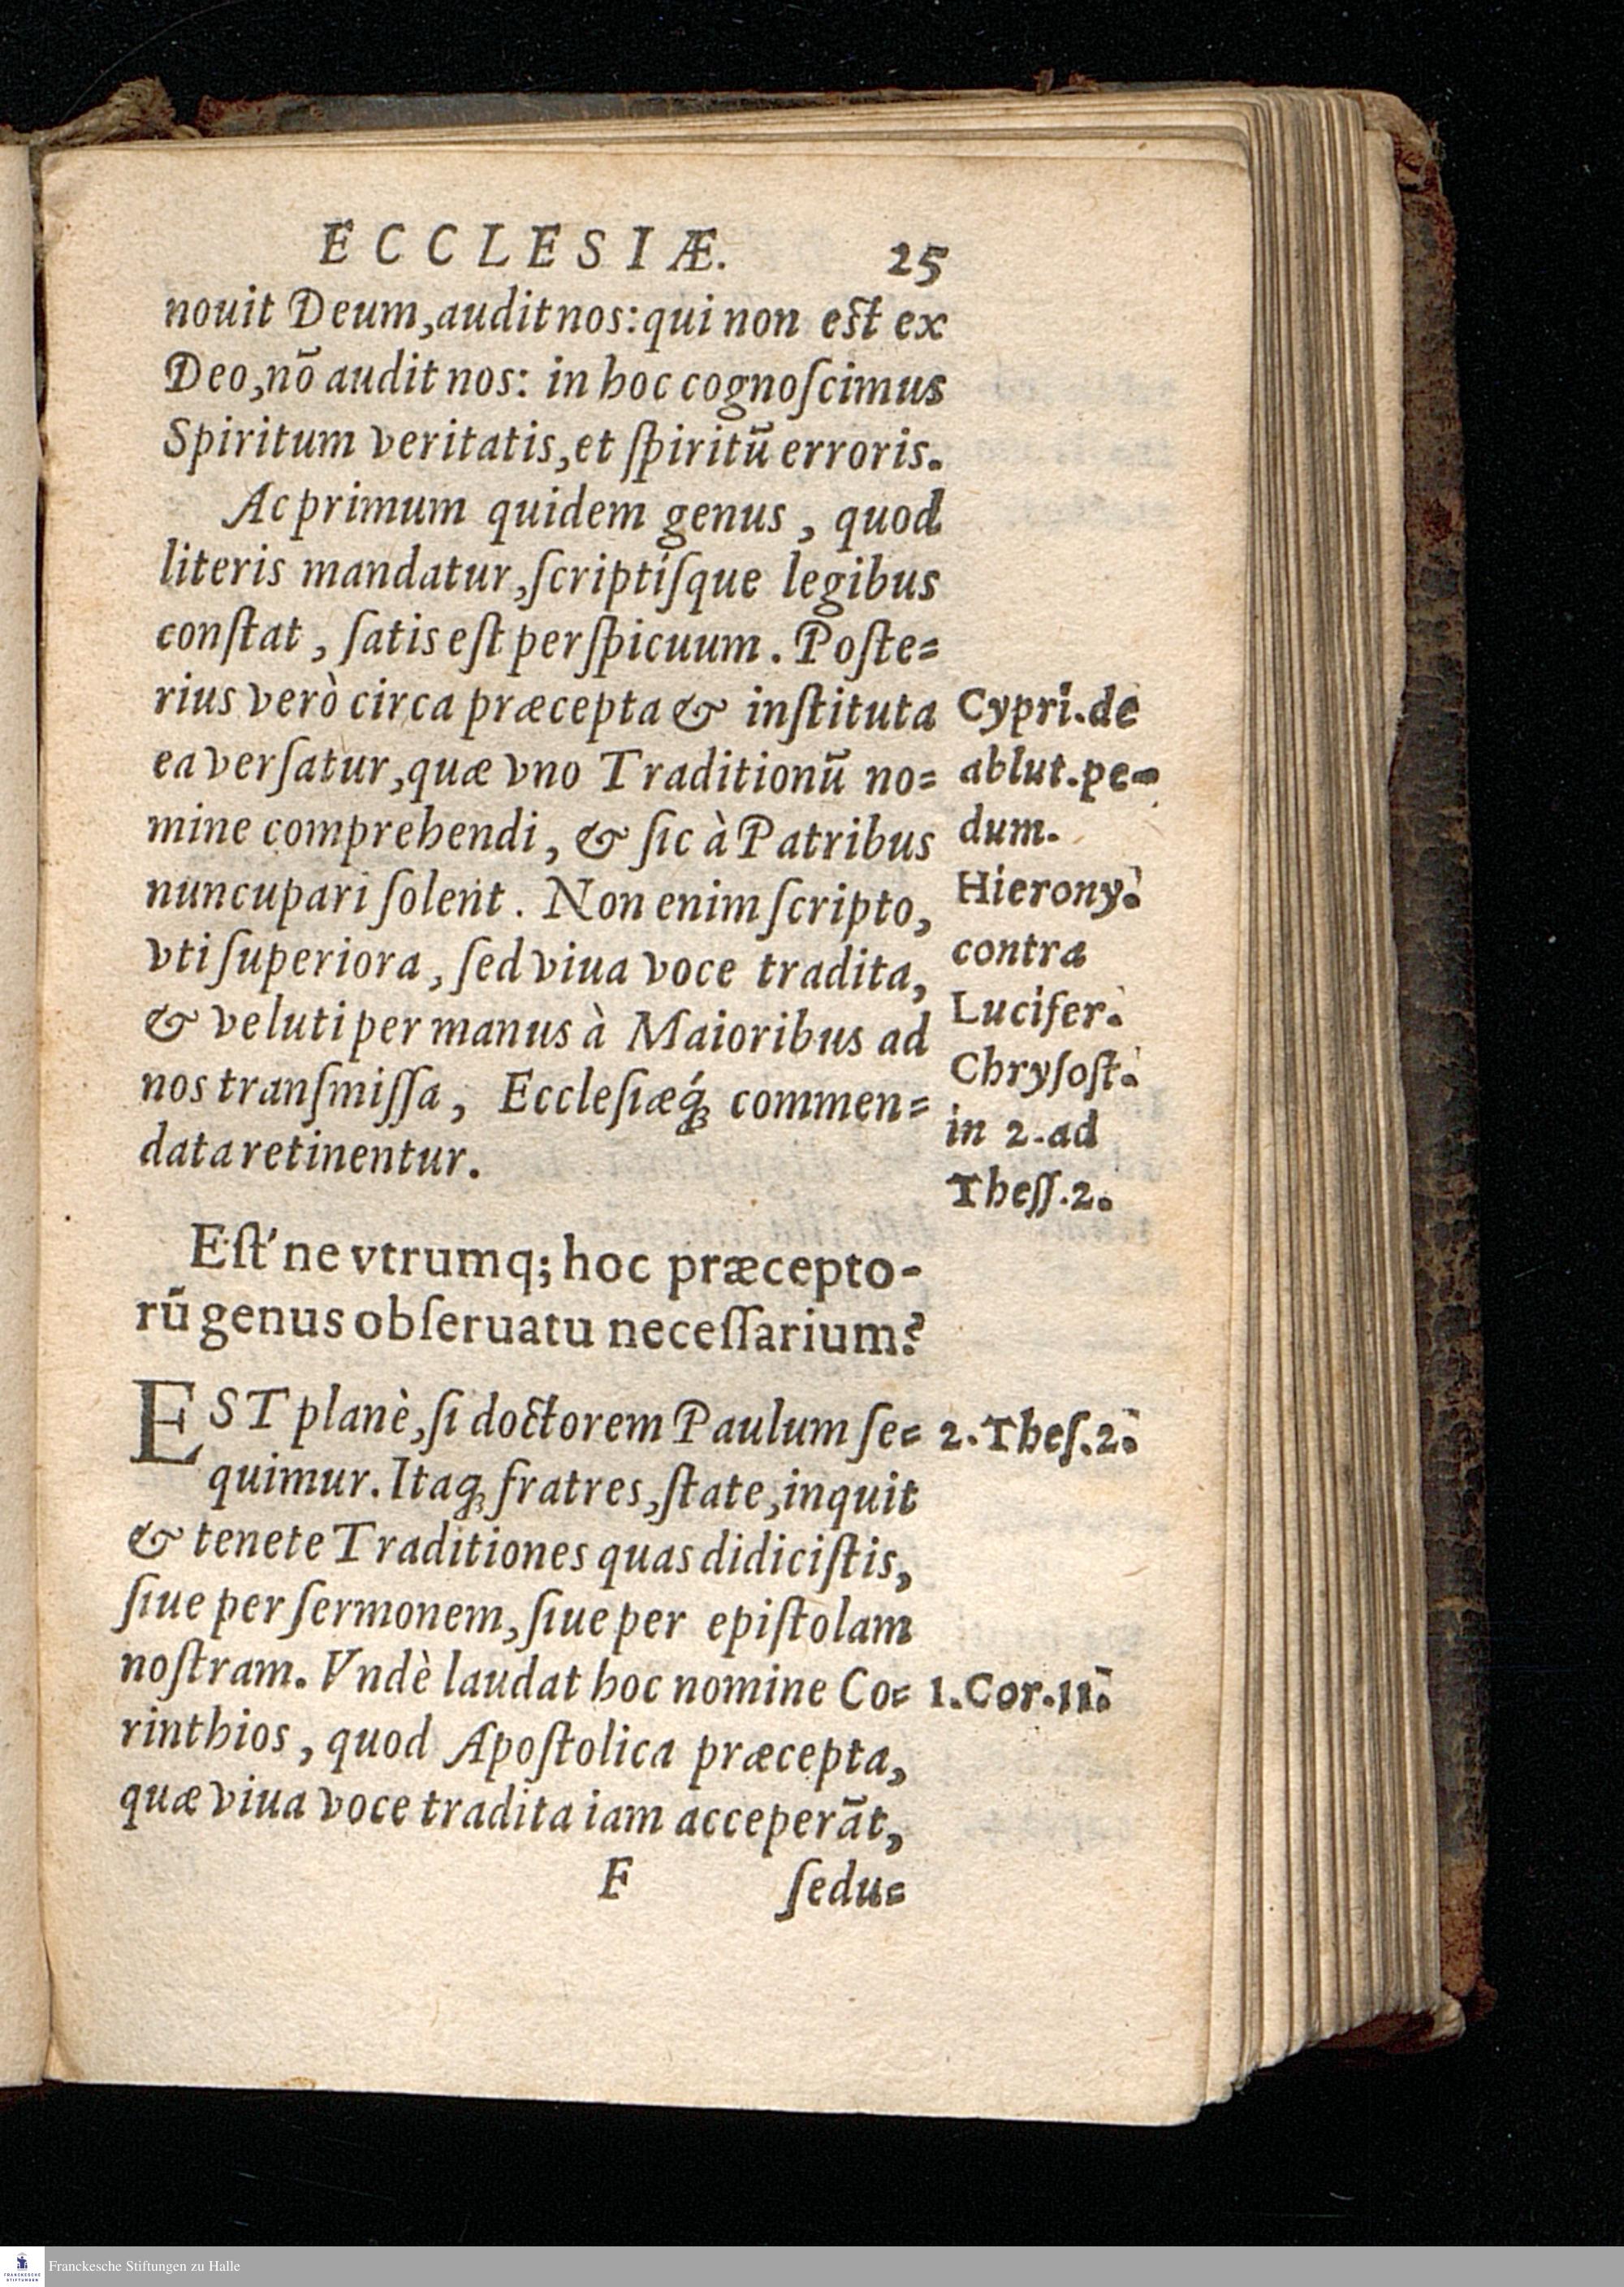 ECCLESIÆ. 25
nouit Deum, audit nos: qui non est ex
Deo, nō audit nos: in hoc cognoſcimus
Spiritum veritatis, et ſpiritū erroris.
Ac primum quidem genus, quod
literis mandatur, ſcriptiſque legibus
conſtat, ſatis eſt perſpicuum. Poſte=
rius verò circa præcepta & inſtituta
ea verſatur, quæ vno Traditionū no=
mine comprehendi, & ſic à Patribus
nuncupari ſolent. Non enim ſcripto,
vti ſuperiora, ſed viua voce tradita,
& veluti per manus à Maioribus ad
nos tranſmiſſa, Eccleſiæq́ꝫ commen=
data retinentur.
Cypri. de
ablut. pe-
dum.
Hierony.
contra
Lucifer.
Chryſoſt.
in 2. ad
Theſſ. 2.
Eſt'ne vtrumq; hoc præcepto-
rū genus obſeruatu neceſſarium?
EST planè, ſi doctorem Paulum ſe=
quimur. Itaqꝫ fratres, ſtate, inquit
& tenete Traditiones quas didiciſtis,
ſiue per ſermonem, ſiue per epiſtolam
noſtram. Vndè laudat hoc nomine Co=
rinthios, quod Apoſtolica præcepta,
quæ viua voce tradita iam acceperāt,
2. Theſ. 2.
1. Cor. 11.
F ſedu=
Franckesche Stiftungen zu Halle
FRANCKESCHE
STIFTUNGEN